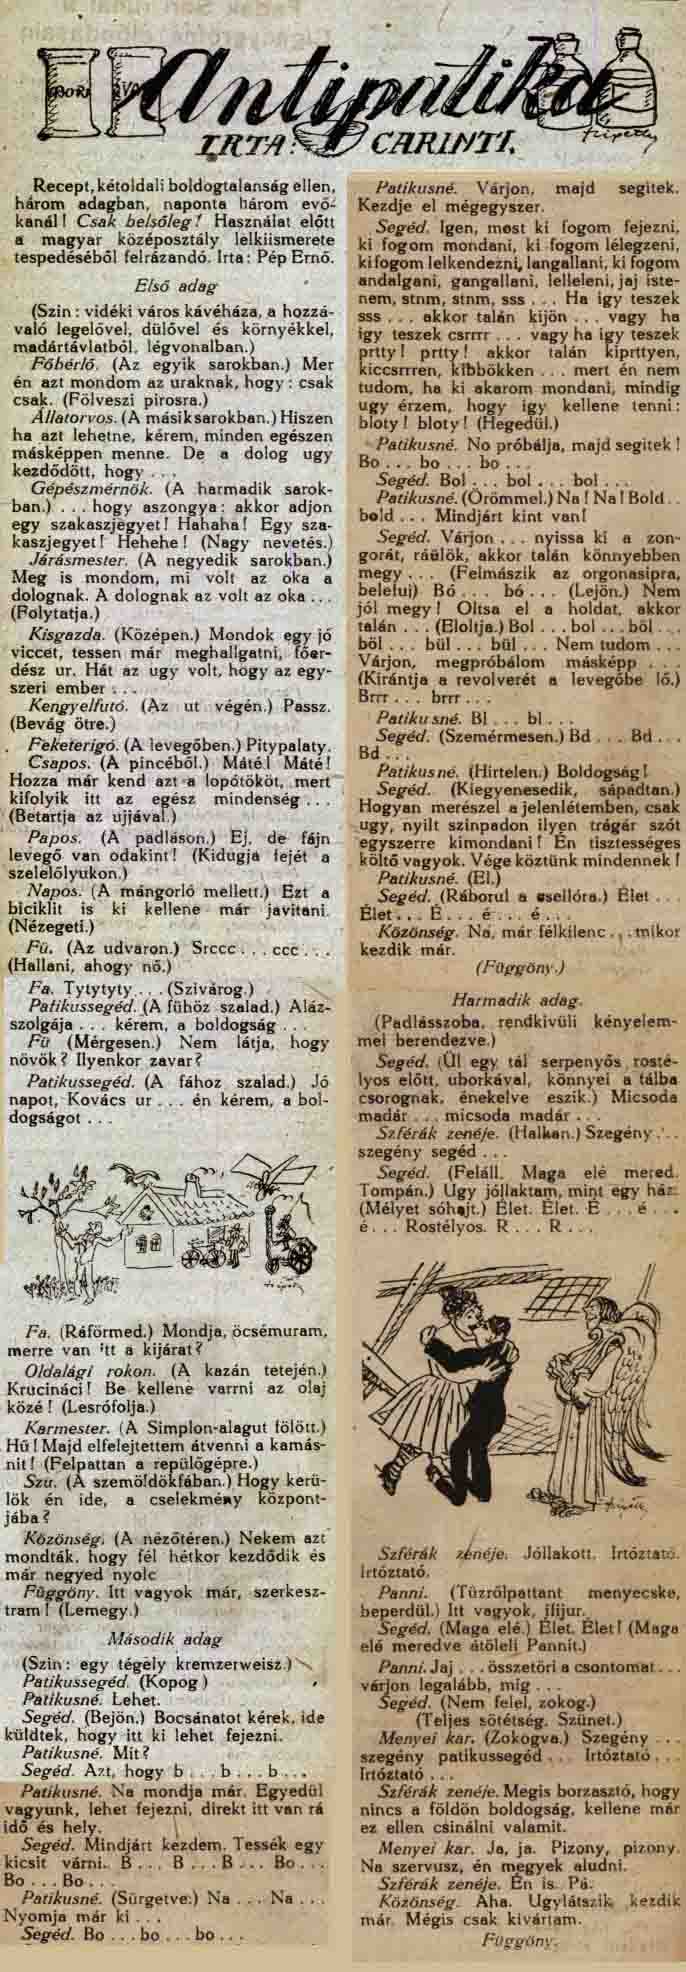 BÓR
VA
Antipatika
IRTA: CARINTI.
Recept, kétoldali boldogtalanság ellen,
három adagban, naponta három evő-
kanál! Csak belsőleg! Használat előtt
a magyar középosztály lelkiismerete
tespedéséből felrázandó. Irta: Pép Ernő.
Első adag
(Szin: vidéki város kávéháza, a hozzá-
való legelővel, dülővel és környékkel,
madártávlatból, légvonalban.)
Főbérlő. (Az egyik sarokban.) Mer
én azt mondom az uraknak, hogy: csak
csak. (Fölveszi pirosra.)
Állatorvos. (A másik sarokban.) Hiszen
ha azt lehetne, kérem, minden egészen
másképpen menne. De a dolog ugy
kezdődött, hogy ...
Gépészmérnök. (A harmadik sarok-
ban.) ... hogy aszongya: akkor adjon
egy szakaszjegyet! Hahaha! Egy sza-
kaszjegyet! Hehehe! (Nagy nevetés.)
Járásmester. (A negyedik sarokban.)
Meg is mondom, mi volt az oka a
dolognak. A dolognak az volt az oka ...
(Folytatja.)
Kisgazda. (Középen.) Mondok egy jó
viccet, tessen már meghallgatni, főer-
dész ur. Hát az ugy volt, hogy az egy-
szeri ember ...
Kengyelfutó. (Az ut végén.) Passz.
(Bevág ötre.)
Feketerigó. (A levegőben.) Pitypalaty.
Csapos. (A pincéből.) Máté! Máté!
Hozza már kend azt a lopótököt, mert
kifolyik itt az egész mindenség ...
(Betartja az ujjával.)
Papos. (A padláson.) Ej, de fájn
levegő van odakint! (Kidugja fejét a
szelelőlyukon.)
Napos. (A mángorló mellett.) Ezt a
biciklit is ki kellene már javitani.
(Nézegeti.)
Fü. (Az udvaron.) Srccc ... ccc ...
(Hallani, ahogy nő.)
Fa. Tytytyty ... (Szivárog.)
Patikussegéd. (A fühöz szalad.) Aláz-
szolgája ... kérem, a boldogság ...
Fü (Mérgesen.) Nem látja, hogy
növök? Ilyenkor zavar?
Patikussegéd. (A fához szalad.) Jó
napot, Kovács ur ... én kérem, a bol-
dogságot ...
Fa. (Ráförmed.) Mondja, öcsémuram,
merre van itt a kijárat?
Oldalági rokon. (A kazán tetején.)
Krucináci! Be kellene varrni az olaj
közé! (Lesrófolja.)
Karmester. (A Simplon-alagut fölött.)
Hű! Majd elfelejtettem átvenni a kamás-
nit! (Felpattan a repülőgépre.)
Szu. (A szemöldökfában.) Hogy kerü-
lök én ide, a cselekmény központ-
jába?
Közönség. (A nézőtéren.) Nekem azt
mondták, hogy fél hétkor kezdődik és
már negyed nyolc
Függöny. Itt vagyok már, szerkesz-
tram! (Lemegy.)
Második adag
(Szin: egy tégely kremzerweisz.)
Patikussegéd. (Kopog)
Patikusné. Lehet.
Segéd. (Bejön.) Bocsánatot kérek, ide
küldtek, hogy itt ki lehet fejezni.
Patikusné. Mit?
Segéd. Azt, hogy b ... b ... b ...
Patikusné. Na mondja már. Egyedül
vagyunk, lehet fejezni, direkt itt van rá
idő és hely.
Segéd. Mindjárt kezdem. Tessék egy
kicsit várni. B ... B ... B ... Bo ...
Bo ... Bo ...
Patikusné. (Sürgetve.) Na ... Na ...
Nyomja már ki ...
Segéd. Bo ... bo ... bo ...
Patikusné. Várjon, majd segitek.
Kezdje el mégegyszer.
Segéd. Igen, most ki fogom fejezni,
ki fogom mondani, ki fogom lélegzeni,
ki fogom lelkendezni, langallani, ki fogom
andalgani, gangallani, lelleleni, jaj iste-
nem, stnm, stnm, sss ... Ha igy teszek
sss ... akkor talán kijön ... vagy ha
igy teszek csrrrr ... vagy ha igy teszek
prtty! prtty! akkor talán kiprttyen,
kiccsrrren, kibbökken ... mert én nem
tudom, ha ki akarom mondani, mindig
ugy érzem, hogy igy kellene tenni:
bloty! bloty! (Hegedül.)
Patikusné. No próbálja, majd segitek!
Bo ... bo ... bo ...
Segéd. Bol ... bol ... bol ...
Patikusné. (Örömmel.) Na! Na! Bold ..
bold ... Mindjárt kint van!
Segéd. Várjon ... nyissa ki a zon-
gorát, ráülök, akkor talán könnyebben
megy ... (Felmászik az orgonasipra,
belefuj) Bó ... bó ... (Lejön.) Nem
jól megy! Oltsa el a holdat, akkor
talán ... (Eloltja.) Bol ... bol ... böl ...
böl ... bül ... bül ... Nem tudom ...
Várjon, megpróbálom másképp ...
(Kirántja a revolverét a levegőbe lő.)
Brrr ... brrr ...
Patikusné. Bl ... bl ...
Segéd. (Szemérmesen.) Bd ... Bd ...
Bd ...
Patikusné. (Hirtelen.) Boldogság!
Segéd. (Kiegyenesedik, sápadtan.)
Hogyan merészel a jelenlétemben, csak
ugy, nyilt szinpadon ilyen trágár szót
egyszerre kimondani! Én tisztességes
költő vagyok. Vége köztünk mindennek!
Patikusné. (El.)
Segéd. (Ráborul a csellóra.) Élet ...
Élet ... É ... é ... é ...
Közönség. Na, már félkilenc ... mikor
kezdik már.
(Függöny.)
Harmadik adag.
(Padlásszoba, rendkivüli kényelem-
mel berendezve.)
Segéd. (Ül egy tál serpenyős rosté-
lyos előtt, uborkával, könnyei a tálba
csorognak, énekelve eszik.) Micsoda
madár ... micsoda madár ...
Szférák zenéje. (Halkan.) Szegény ...
szegény segéd ...
Segéd. (Feláll. Maga elé mered.
Tompán.) Ugy jóllaktam, mint egy ház.
(Mélyet sóhajt.) Élet. Élet. É ... é ...
é ... Rostélyos. R ... R ...
Szférák zenéje. Jóllakott. Irtóztató.
Irtóztató.
Panni. (Tüzrőlpattant menyecske,
beperdül.) Itt vagyok, ifijur.
Segéd. (Maga elé.) Élet. Élet! (Maga
elé meredve átöleli Pannit.)
Panni. Jaj ... összetöri a csontomat ...
várjon legalább, mig ...
Segéd. (Nem felel, zokog.)
(Teljes sötétség. Szünet.)
Menyei kar. (Zokogva.) Szegény ...
szegény patikussegéd ... Irtóztató ...
Irtóztató ...
Szférák zenéje. Mégis borzasztó, hogy
nincs a földön boldogság, kellene már
ez ellen csinálni valamit.
Menyei kar. Ja, ja. Pizony, pizony.
Na szervusz, én megyek aludni.
Szférák zenéje. Én is. Pá.
Közönség. Aha. Ugylátszik, kezdik
már. Mégis csak kivártam.
Függöny.